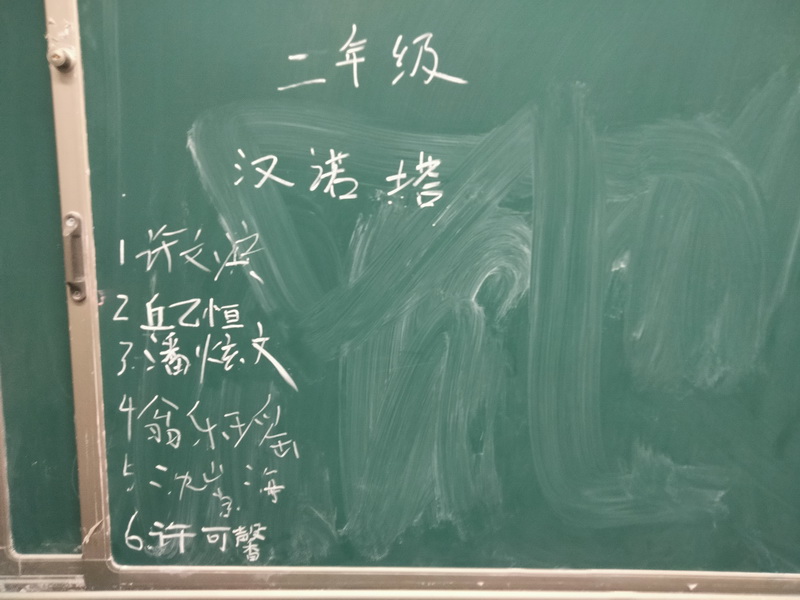 二年级
汉诺塔
1 许文滨
2 丘乙恒
3.潘炫文
4翁乐瑶
5 沈崇海
6.许可馨